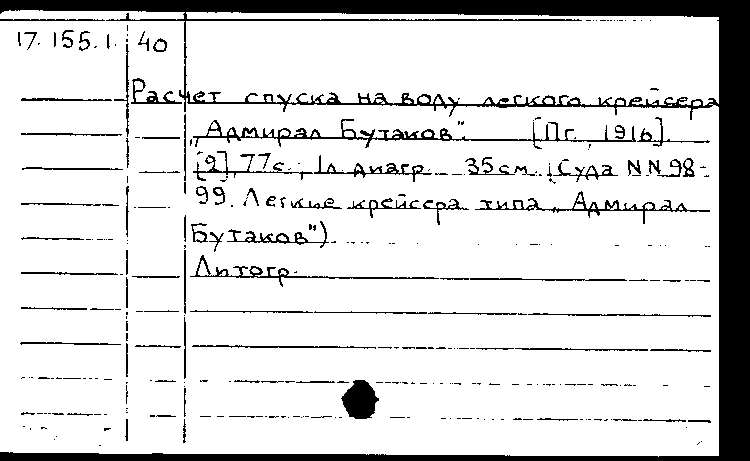 17.155.1. 40
Расчет спуска на воду легкого крейсера
„Адмирал Бутаков". [Пг., 1916].
[2], 77 с.; 1 л. диагр. 35 см. (Суда NN 98-
99. Легкие крейсера типа „Адмирал
Бутаков")
Литогр.